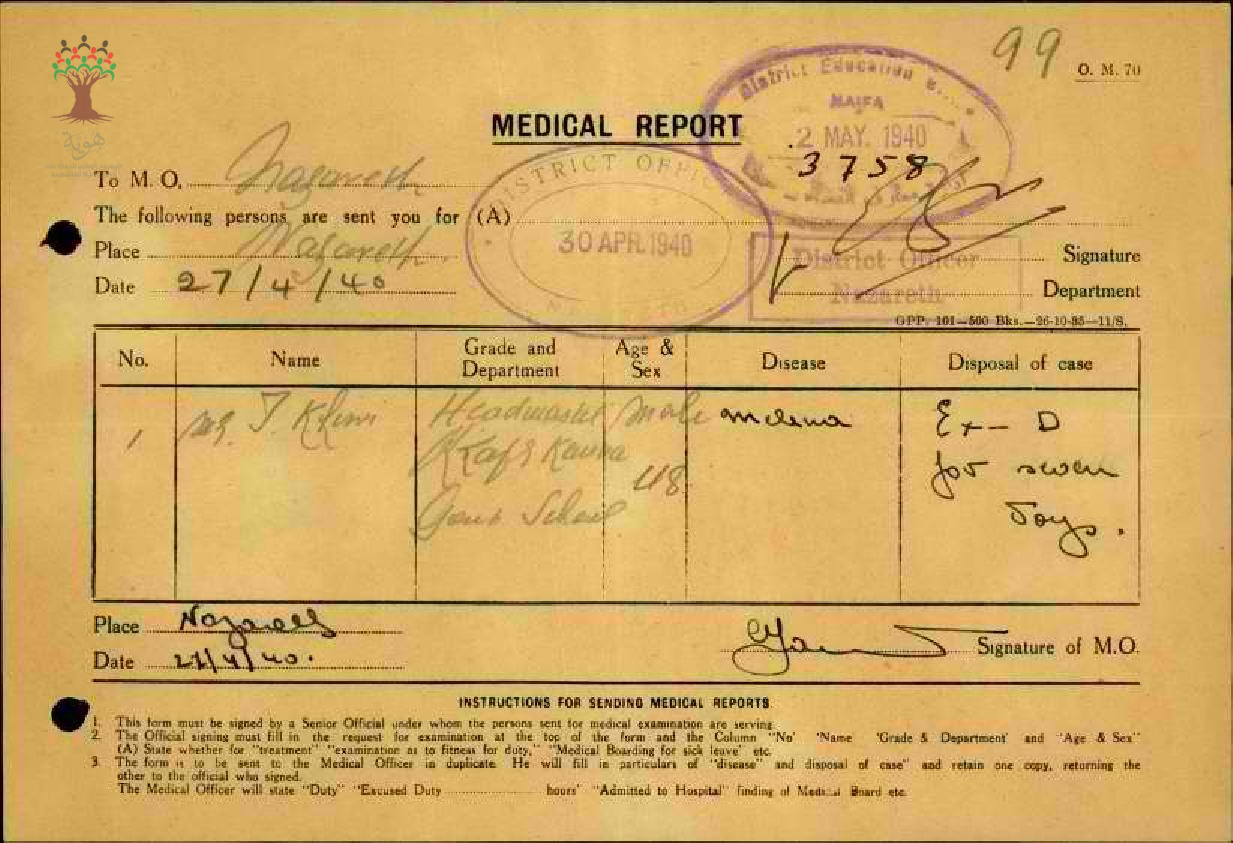 99
O. M. 70
هوية
District Education
HAIFA
2 MAY. 1940
3758
MEDICAL REPORT
DISTRICT OFFIC
30 APR. 1940
To M. O. Nazareth
The following persons are sent you for (A)
Place Nazareth
Signature
District Officer
Nazareth
Date 27/4/40
Department
GPP. 101—500 Bks.—26-10-35—11/S.
No. Name Grade and Department Age & Sex Disease Disposal of case
1 Mr. T. Headmaster Male Melena Ex— D
Kafr Kanna for seven
48
Govt School Days.
Place Nazareth
Signature of M.O.
Date 27/4/40.
INSTRUCTIONS FOR SENDING MEDICAL REPORTS.
1. This form must be signed by a Senior Official under whom the persons sent for medical examination are serving.
2. The Official signing must fill in the request for examination at the top of the form and the Column "No' 'Name 'Grade & Department' and 'Age & Sex"
(A) State whether for "treatment" "examination as to fitness for duty," "Medical Boarding for sick leave' etc.
3. The form is to be sent to the Medical Officer in duplicate. He will fill in particulars of "disease" and disposal of case" and retain one copy, returning the
other to the official who signed.
The Medical Officer will state "Duty" "Excused Duty hours' "Admitted to Hospital" finding of Medical Board etc.